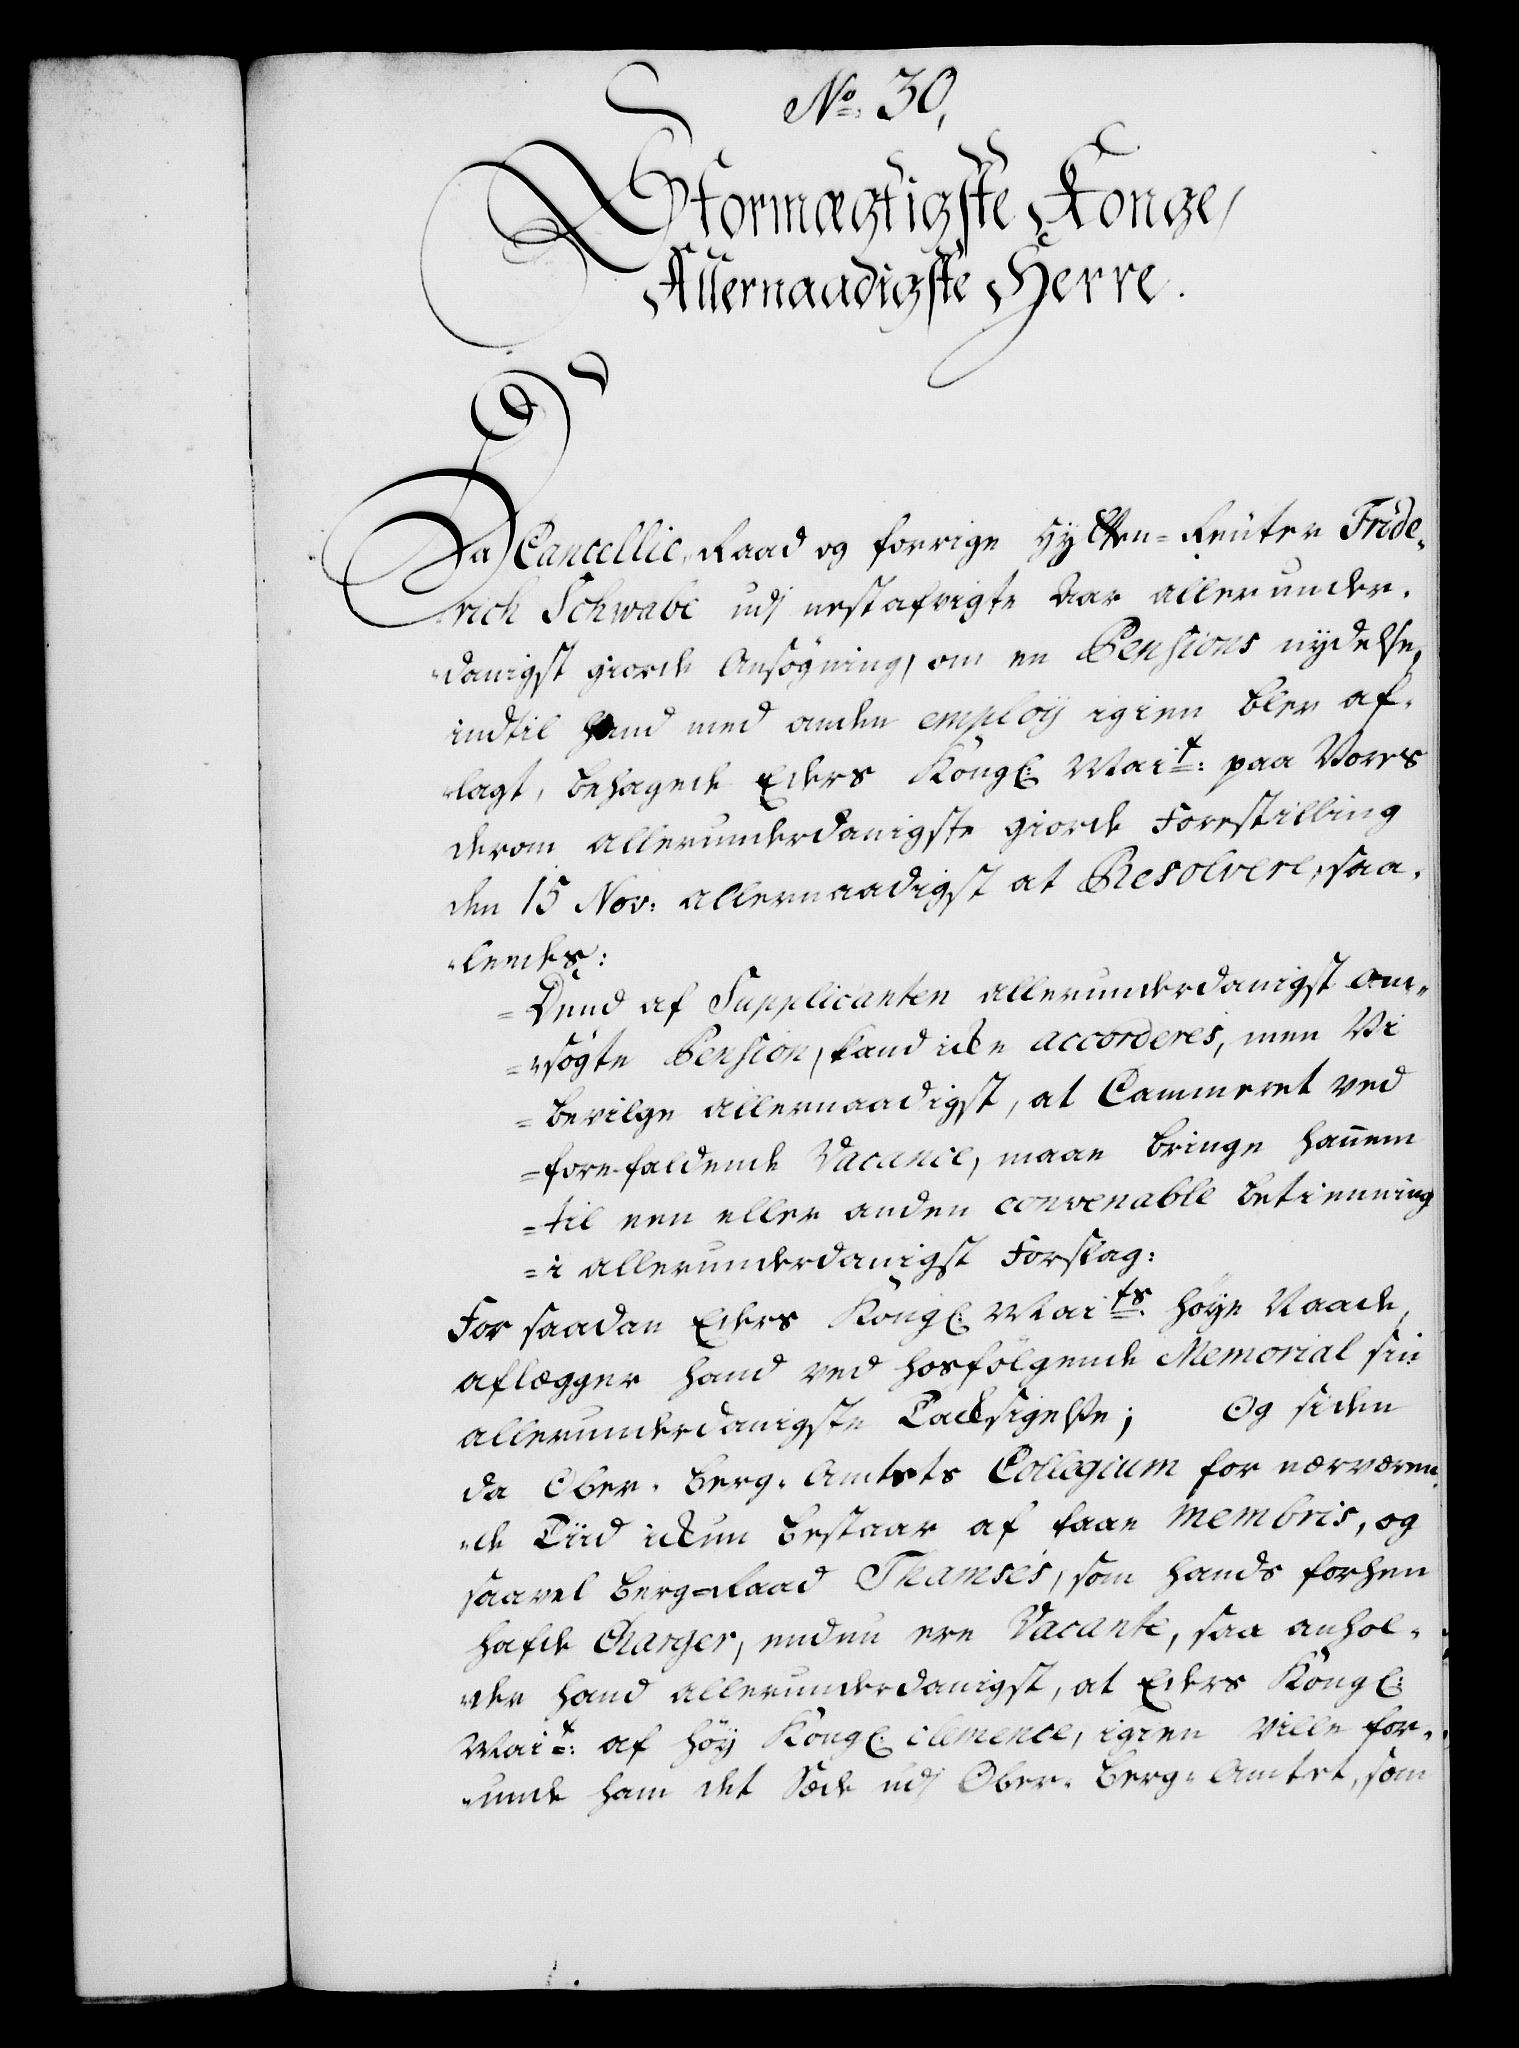 No. 30,
Stormægtigste Konge,
Allernaadigste Herre.
Da Cancellie-Raad og forrige Hytten-Reuter Fride-
rich Schwabe udj nestafvigte Aar allerunder-
danigst giorde Ansögning, om en Pensions nydelse,
indtil hand med anden employ igien blev af-
lagt, behagede Eders Kongl. Mait: paa Vores
derom allerunderdanigste giorde Forestilling
den 15 Nov: allernaadigst at Resolvere, saa-
ledes:
= Dend af Supplicanten allerunderdanigst an-
= søgte Pension, kand icke accorderes, men Vi
= bevilge allernaadigst, at Cammeret ved
= forefaldende Vacance, maae bringe hannem
= til een eller anden convenable betienning
= i allerunderdanigst Forslag:
For saadan Eders Kongl. Maits. höye Naade,
aflægger hand ved hosfölgende Memorial sin
allerunderdanigste Tacksigelse; Og siden
da Ober-Berg-Amtets Collegium for nærværen-
de Tiid ickun bestaar af faae membris, og
saavel Berg-Raad Thamses, som hands forhen
hafde Charger, endnu ere Vacante, saa anhol-
der hand allerunderdanigst, at Eders Kongl.
Mait: af höy Kongl. clemence, igien ville for-
unde ham det Sæde udj Ober-Berg-Amtet, som